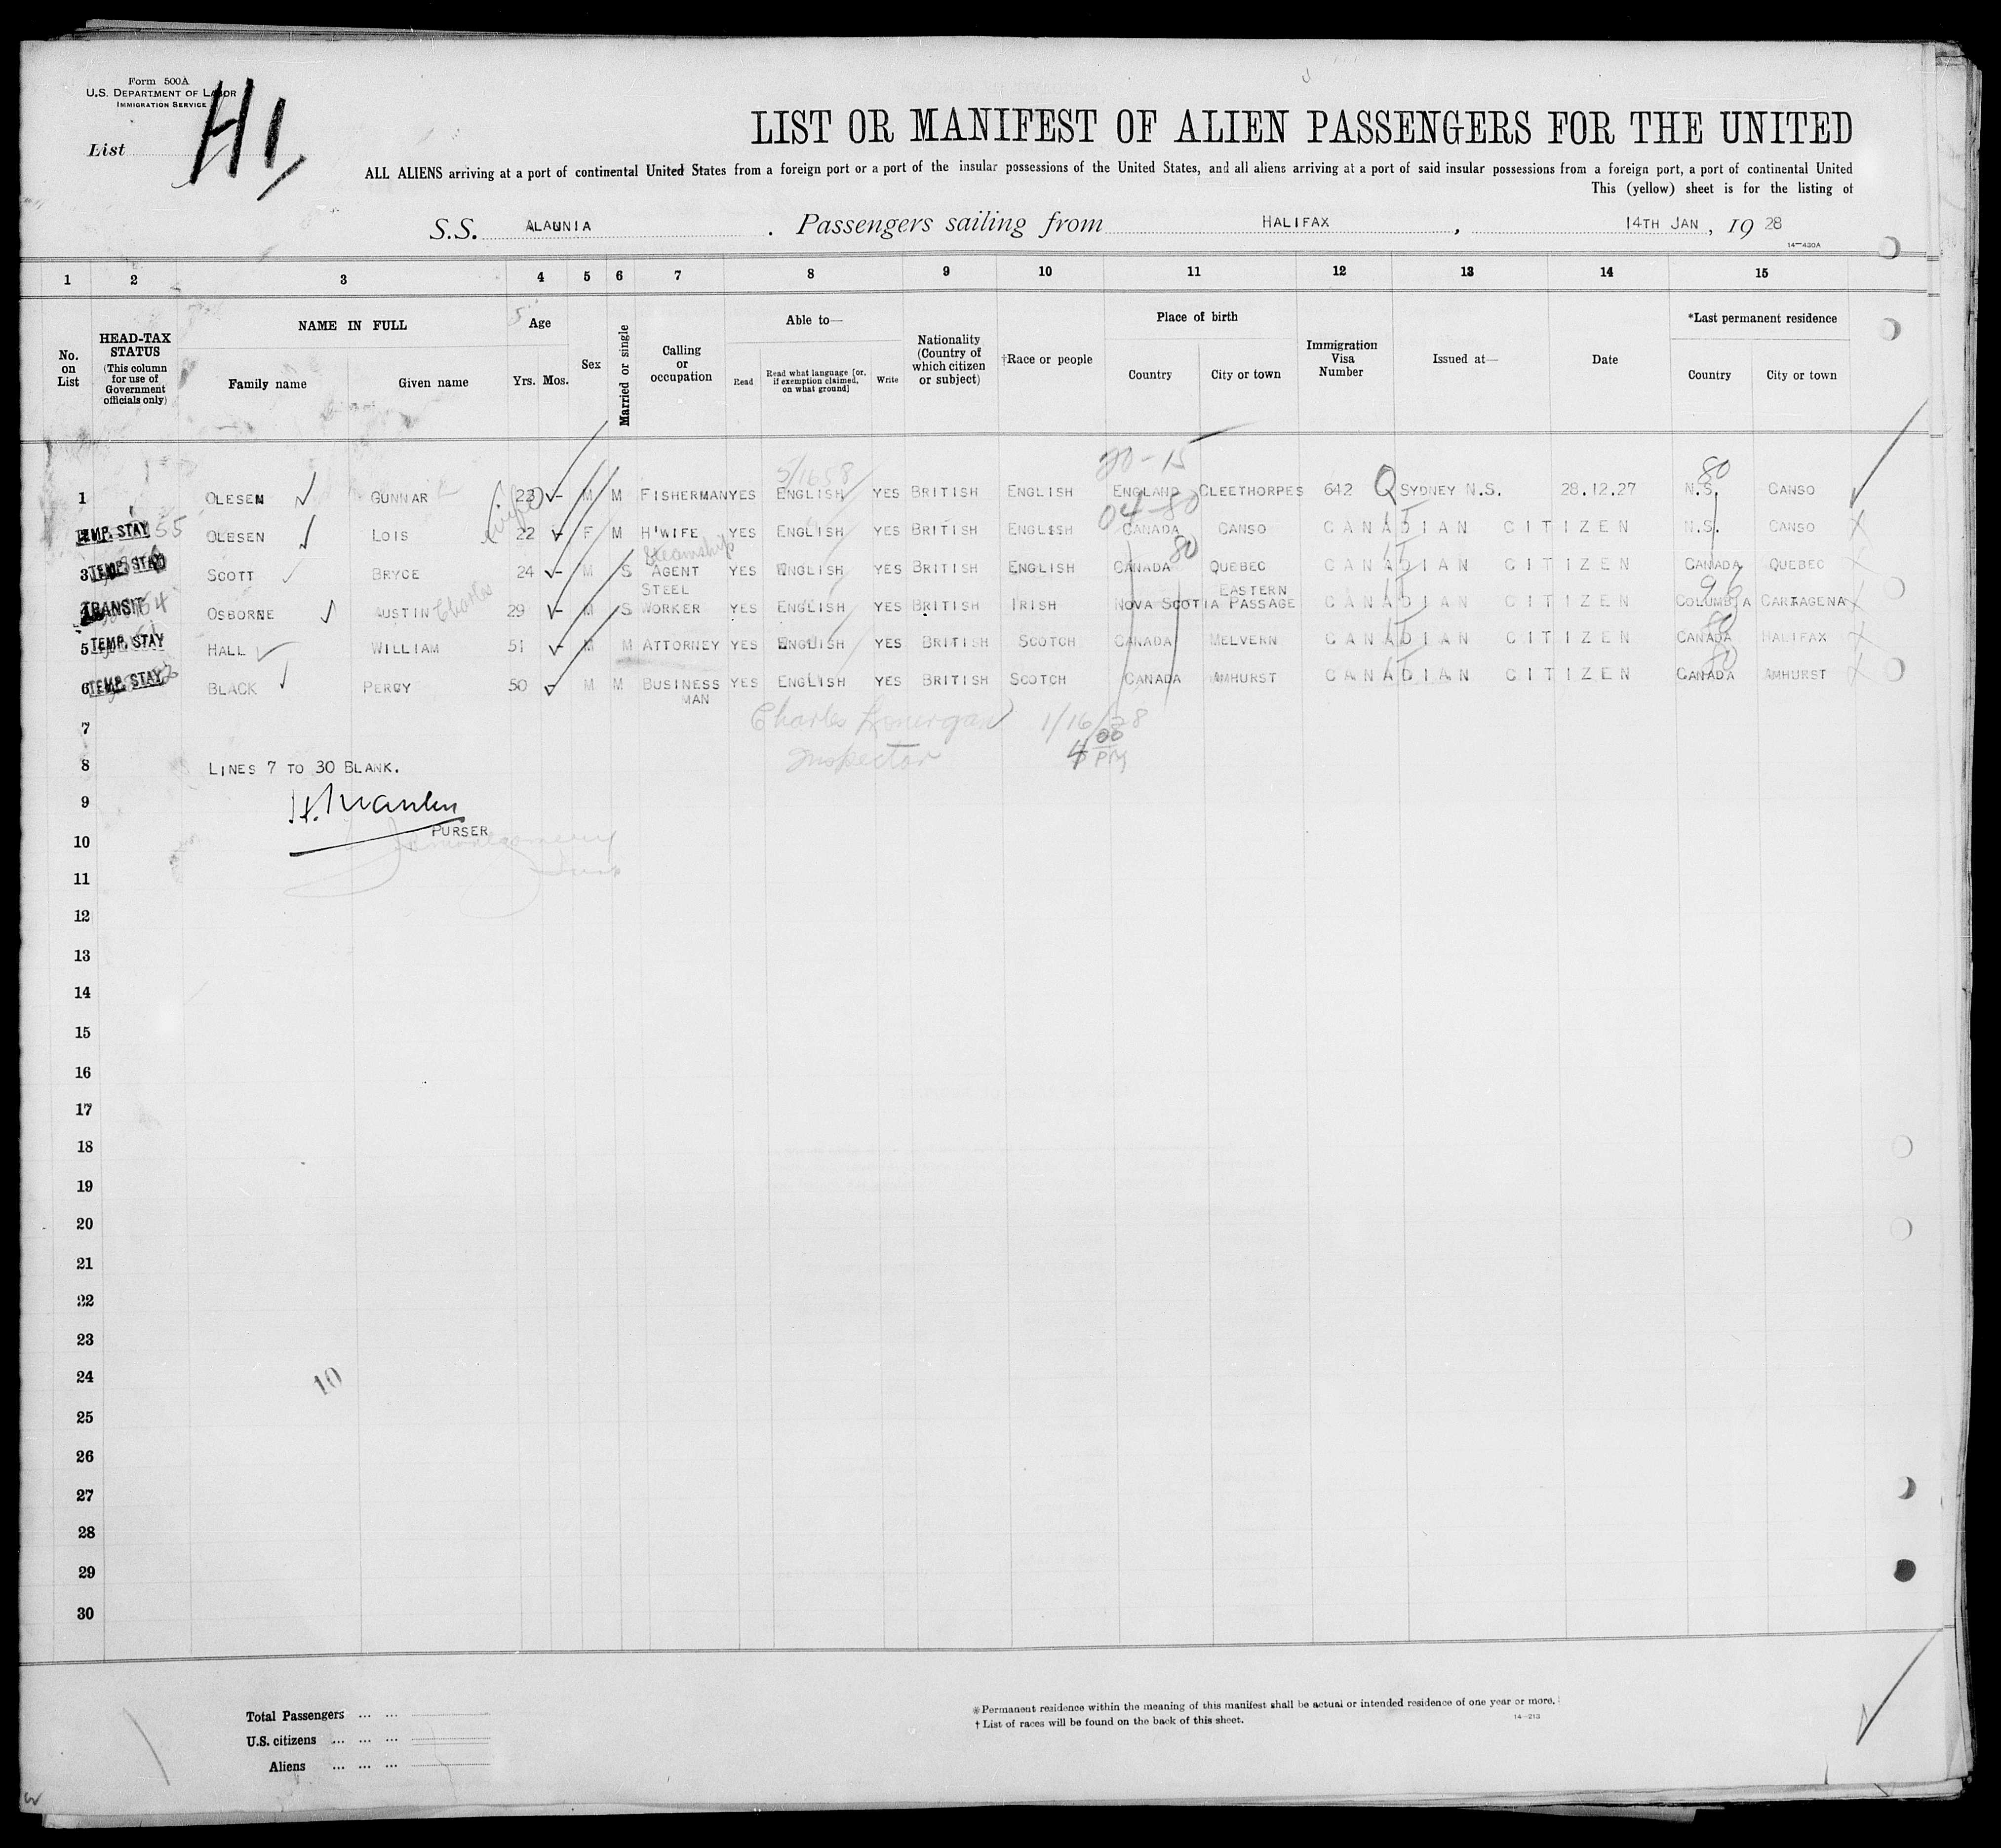 Form 500A
U.S. DEPARTMENT OF LABOR
IMMIGRATION SERVICE
List H1
LIST OR MANIFEST OF ALIEN PASSENGERS FOR THE UNITED
ALL ALIENS arriving at a port of continental United States from a foreign port or a port of the insular possessions of the United States, and all aliens arriving at a port of said insular possessions from a foreign port, a port of continental United
This (yellow) sheet is for the listing of
S.S. ALAUNIA. Passengers sailing from HALIFAX, 14TH JAN, 19 28
14—430A
1 2 3 4 5 6 7 8 9 10 11 12 13 14 15
No. on List
HEAD-TAX STATUS (This column for use of Government officials only)
NAME IN FULL Family name Given name
5 Age Yrs. Mos.
Sex
Married or single
Calling or occupation
Able to— Read Read what language [or, if exemption claimed, on what ground] Write
Nationality (Country of which citizen or subject)
†Race or people
Place of birth Country City or town
Immigration Visa Number
Issued at—
Date
*Last permanent residence Country City or town
5/1658 20-15 80
1 OLESEN GUNNAR 23 M M FISHERMAN YES ENGLISH YES BRITISH ENGLISH ENGLAND CLEETHORPES 642 Q SYDNEY N.S. 28.12.27 N.S. CANSO
04-80
TEMP. STAY 55 OLESEN LOIS wife 22 F M H'WIFE YES ENGLISH YES BRITISH ENGLISH CANADA CANSO CANADIAN CITIZEN N.S. CANSO
Steamship 80
3 TEMP. STAY SCOTT BRYCE 24 M S AGENT YES ENGLISH YES BRITISH ENGLISH CANADA QUEBEC CANADIAN CITIZEN CANADA QUEBEC
STEEL EASTERN 96
TRANSIT OSBORNE AUSTIN Charles 29 M S WORKER YES ENGLISH YES BRITISH IRISH NOVA SCOTIA PASSAGE CANADIAN CITIZEN COLUMBIA CARTAGENA
80
5 TEMP. STAY HALL WILLIAM 51 M M ATTORNEY YES ENGLISH YES BRITISH SCOTCH CANADA MELVERN CANADIAN CITIZEN CANADA HALIFAX
80
6 TEMP. STAY BLACK PERCY 50 M M BUSINESS YES ENGLISH YES BRITISH SCOTCH CANADA AMHURST CANADIAN CITIZEN CANADA AMHURST
MAN
7 Charles Lonergan 1/16/28
Inspector 4 00 PM
8 LINES 7 TO 30 BLANK.
9
PURSER
10
11
12
13
14
15
16
17
18
19
20
21
22
23
24
10
25
26
27
28
29
30
Total Passengers ... ...
U.S. citizens ... ... ...
Aliens ... ... ...
*Permanent residence within the meaning of this manifest shall be actual or intended residence of one year or more.
† List of races will be found on the back of this sheet.
14—213